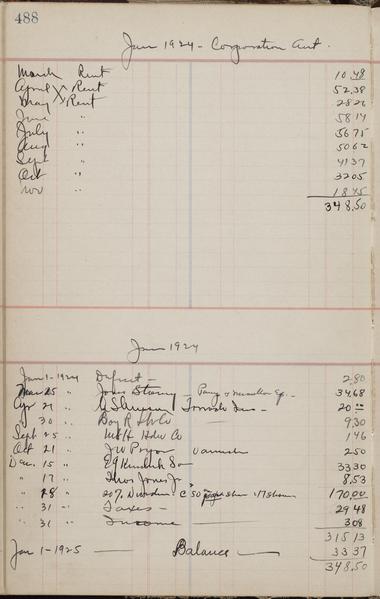 488
Jan 1924 - Corporation Acct.
March Rent 10.48
April " Rent 52.38
May " Rent 28.26
June " 58.14
July " 56.75
Aug " 50.62
Sept " 41.37
Oct " 32.05
Nov 18.45
348.50
Jan 1924
Jan 1 - 1924 Deficit - 2.80
Mar 25 " Jones 34.68
Apr 21 " Tornado Ins - 20.00
" 30 " 9.30
Sept 25 " Hdw Co 1.46
Oct 21 " J W Pryor Varnish 2.50
Dec. 15 " Son 33.30
" 17 " Thos Jones Jr 8.53
" 28 " 20% 50 share 17 Shares 170.00
" 31 - " Taxes - 29.48
" 31 " Income - 3.08
315.13
Jan 1 - 1925 — Balance — 33.37
348.50